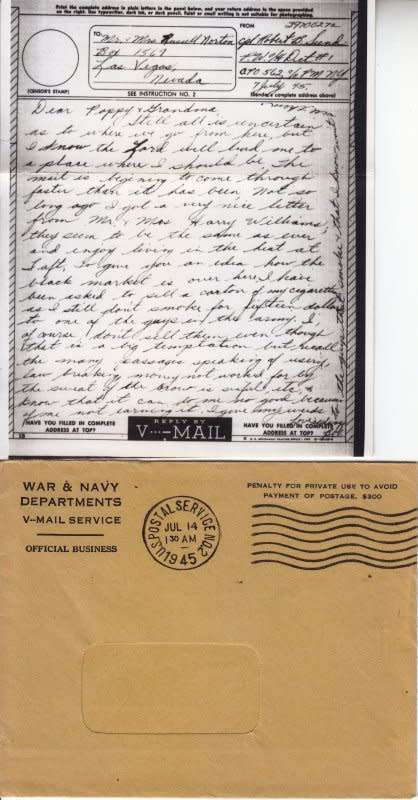 Print the complete address in plain letters in the panel below, and your return address in the space provided
on the right. Use typewriter, dark ink, or dark pencil. Faint or small writing is not suitable for photographing.
TO:
Mr. & Mrs Russell Norton
Box 1567
Las Vegas,
Nevada
FROM
39700272
Cpl Robert B.
APO 562, % P.M. N.Y.
7 July 45
(Sender's complete address above)
(CENSOR'S STAMP)
SEE INSTRUCTION NO. 2
Dear Poppy & Grandma,
Still all is uncertain
as to where we go from here but
I know the Lord will lead me to
a place where I should be. the
mail is begining to come through
faster than it has been. Not so
long ago I got a very nice letter
from Mr. & Mrs Harry Williams,
they seem to be the same as ever
and enjoy living in the heat at
Taft. To give you an idea how the
black market is over here, I have
been asked to sell a carton of my cigarettes
as I still dont smoke for fifteen dollars
to one of the guys in the army, I
of course dont sell them even though
that is a big temptation but recall
the many passages speaking of usery
law breaking money not worked for by
the sweat of the brow is sinful etc &
know that it can do me no good because
of me not earning it. I gave some
HAVE YOU FILLED IN COMPLETE
ADDRESS AT TOP?
REPLY BY
V···—MAIL
HAVE YOU FILLED IN COMPLETE
ADDRESS AT TOP?
WAR & NAVY
DEPARTMENTS
V-MAIL SERVICE
OFFICIAL BUSINESS
U.S. POSTAL SERVICE NO. 2
JUL 14
1 30 AM
1945
PENALTY FOR PRIVATE USE TO AVOID
PAYMENT OF POSTAGE, $300